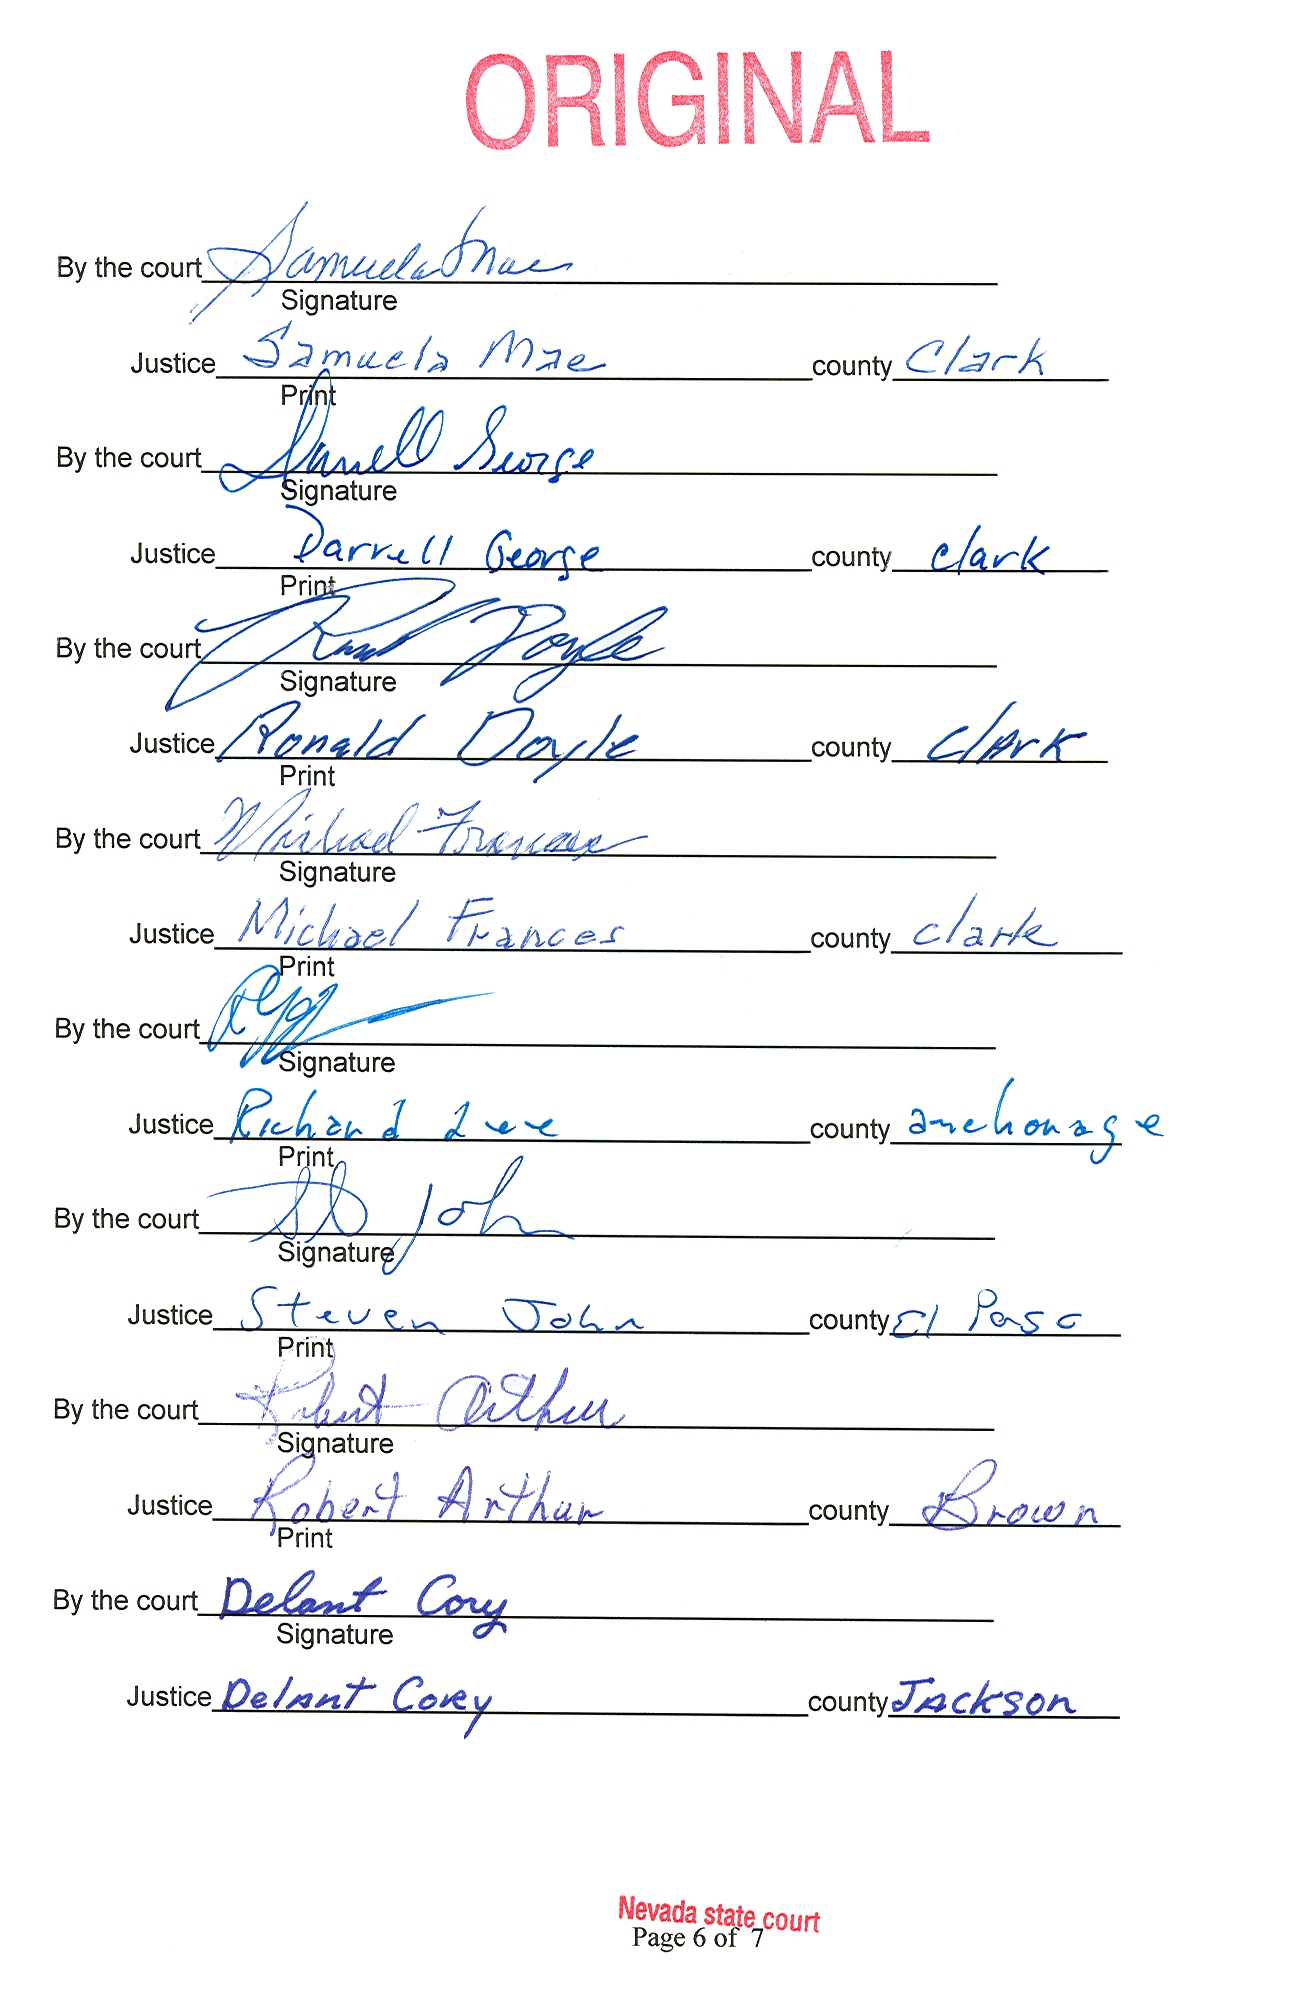 ORIGINAL
By the court Samuela Mae
Signature
Justice Samuela Mae county Clark
Print
By the court Darrell George
Signature
Justice Darrell George county clark
Print
By the court Doyle
Signature
Justice Ronald Doyle county Clark
Print
By the court Michael Frances
Signature
Justice Michael Frances county clark
Print
By the court
Signature
Justice Richard Lee county anchorage
Print
By the court John
Signature
Justice Steven John county El Paso
Print
By the court Robert Arthur
Signature
Justice Robert Arthur county Brown
Print
By the court Delant Cory
Signature
Justice Delant Corey county Jackson
Nevada state court
Page 6 of 7